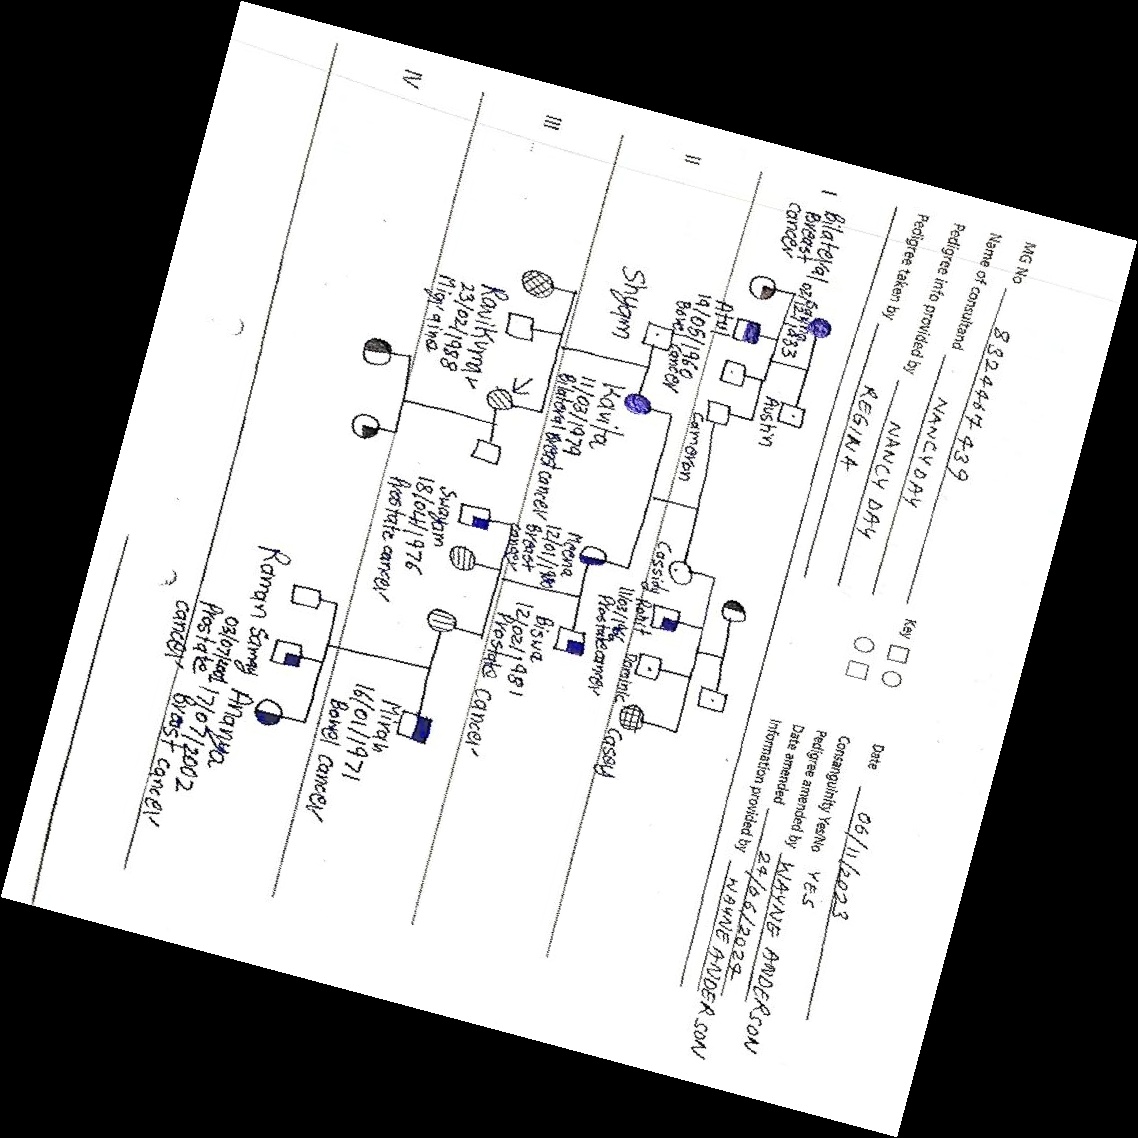 MG No 8324467439
Name of consultand
Pedigree info provided by NANCY DAY
Pedigree taken by NANCY DAY
REGINA
Key
Date 06/11/2023
Consanguinity Yes/No YES
Pedigree amended by WAYNE ANDERSON
Date amended 24/06/2024
Information provided by WAYNE ANDERSON
I
Bilateral
Breast
cancer
02/12/1833
Austin
II
Atul
19/05/1960
Bowel cancer
Cameron
Cassidy
Rohit
Prostate cancer
Dominic
Casey
III
Shyam
Kavita
11/03/1979
Bilateral Breast cancer
Meena
12/01/1980
Breast
cancer
Biswa
12/02/1981
Prostate cancer
IV
Ravi Kumar
23/02/1988
Migraine
Swayam
18/04/1976
Prostate cancer
Miran
16/01/1971
Bowel cancer
Raman
Samay
Prostate
cancer
Ananya
17/07/2002
Breast cancer